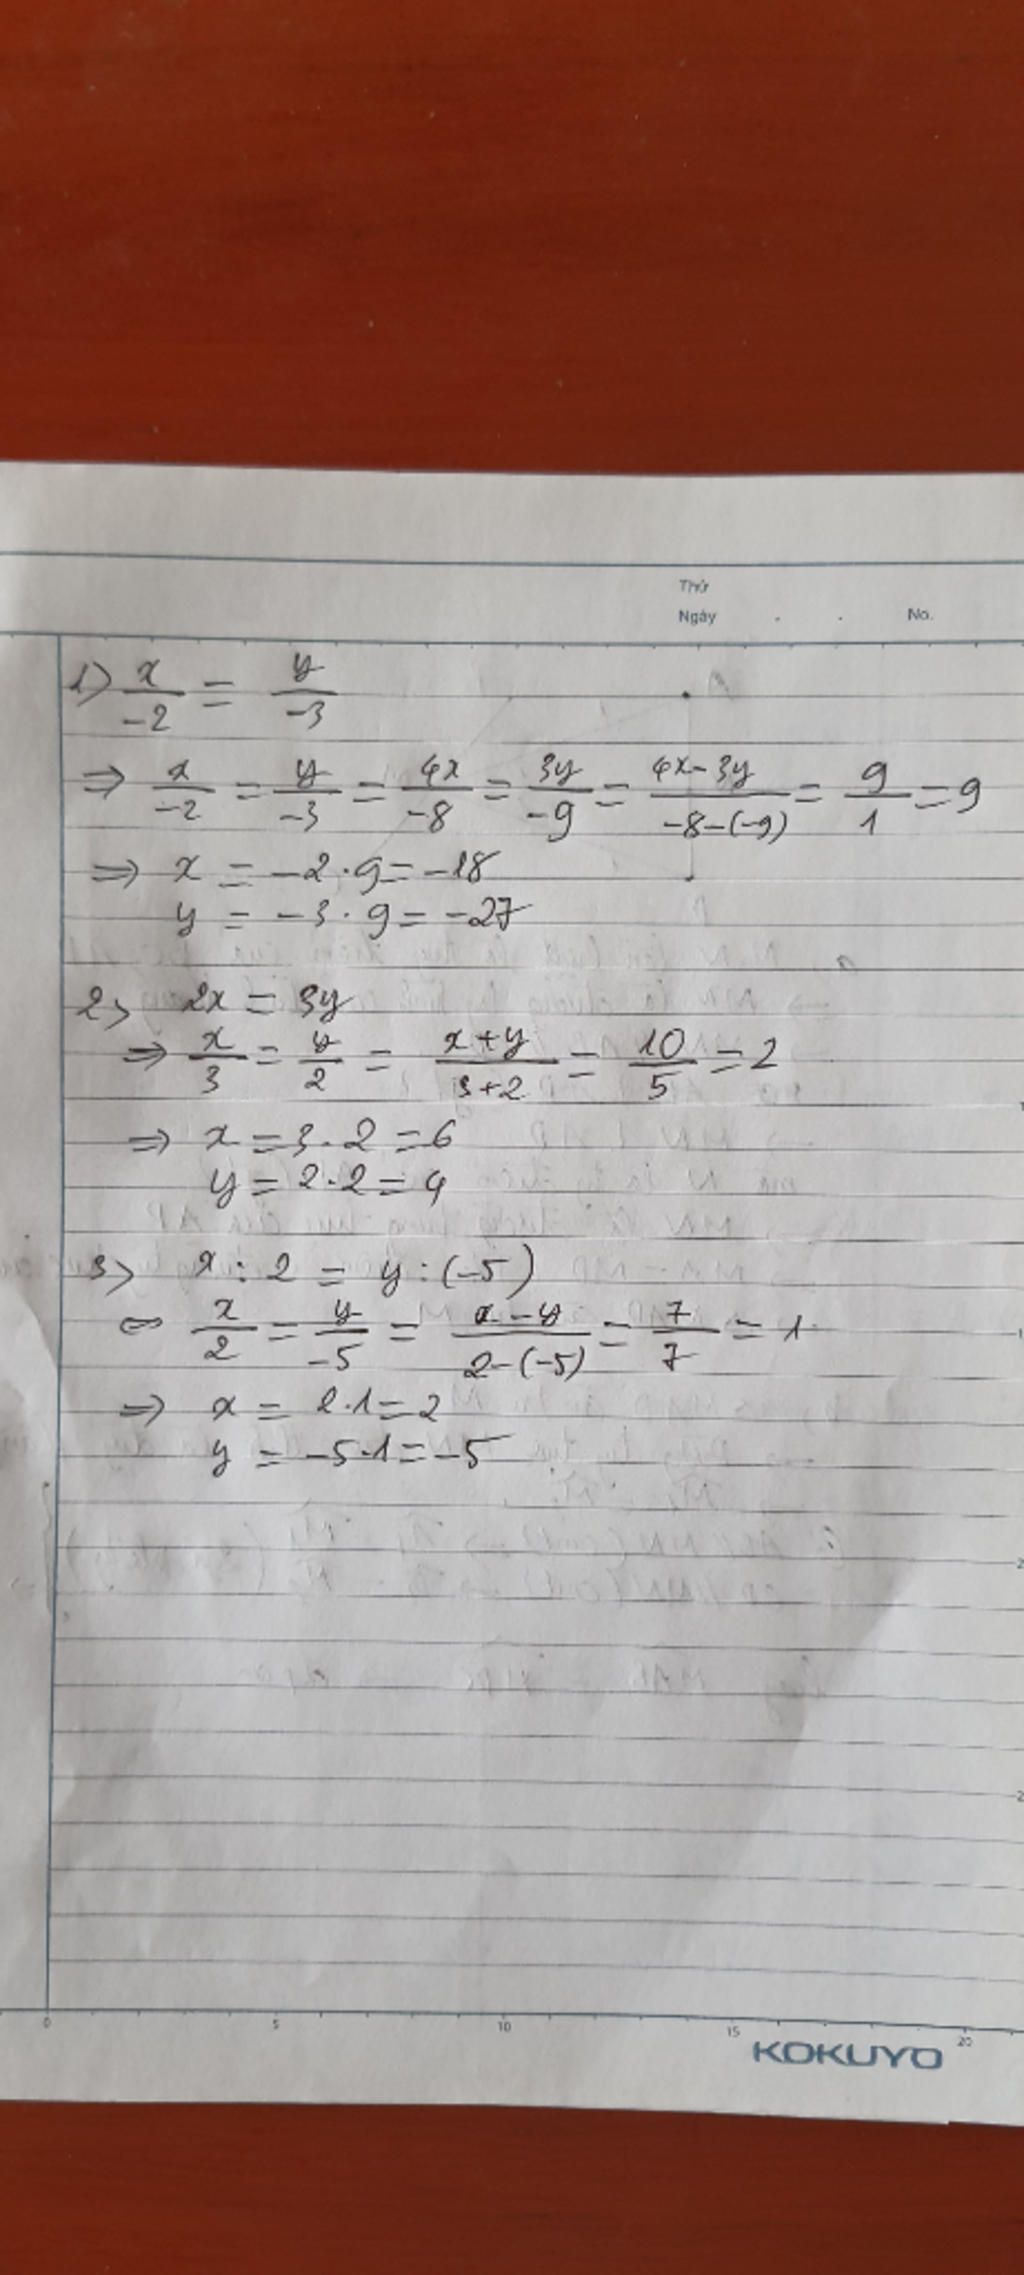 Thứ
Ngày . . No.
1) x/-2 = y/-3
⇒ x/-2 = y/-3 = 4x/-8 = 3y/-9 = 4x-3y/-8-(-9) = 9/1 = 9
⇒ x = -2·9 = -18
y = -3·9 = -27
2) 2x = 3y
⇒ x/3 = y/2 = x+y/3+2 = 10/5 = 2
⇒ x = 3·2 = 6
y = 2·2 = 4
3) x : 2 = y : (-5)
⇔ x/2 = y/-5 = x-y/2-(-5) = 7/7 = 1
⇒ x = 2·1 = 2
y = -5·1 = -5
0 5 10 15 20
KOKUYO